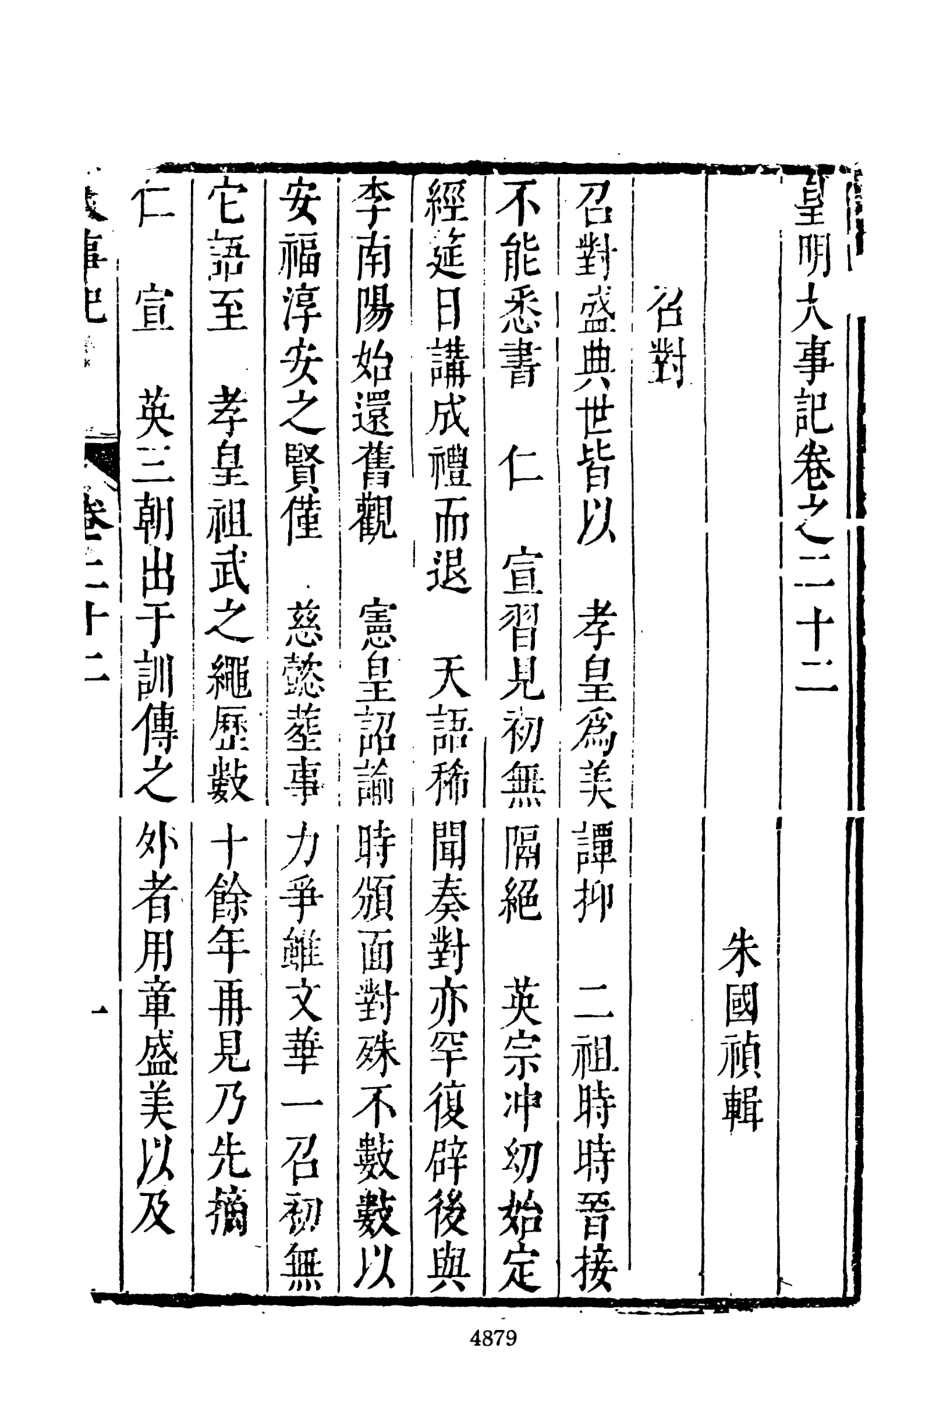 皇明大事記卷之二十二
朱國禎輯
召對
召對盛典世皆以　孝皇爲美譚抑　二祖時時晉接
不能悉書　仁　宣習見初無隔絕　英宗冲幼始定
經筵日講成禮而退　天語稀聞奏對亦罕復辟後與
李南陽始還舊觀　憲皇詔諭時頒面對殊不數數以
安福淳安之賢僅　慈懿塟事力爭雖文華一召初無
它語至　孝皇祖武之繩歷數十餘年再見乃先摘
仁　宣　英三朝出于訓傳之外者用章盛美以及
大事記
卷二十二
一
4879